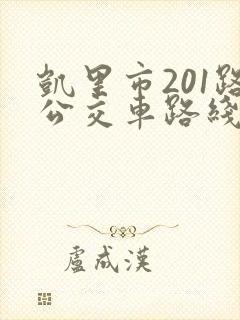 凱里市201路
公交車路綫
盧成漢